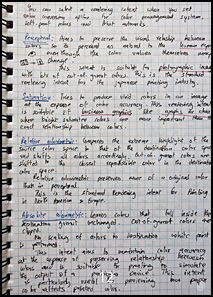 You can select a rendering intent when you set
color conversion options for color management system,
soft-proof colors and print artwork.
Perceptual: tries to preserve the visual relationship between
colors so its perceived as natural to the human eye,
even though the color values themselves may
change
This intent is suitable for photographic images
with lots of out-of-gamut colors. This is the standard
rendering intent for the japanese printing industry.
Saturation: Tries to produce vivid colors in an image
at the expense of color accuracy. This rendering intent
is suitable for business graphics like graphs or charts,
where bright saturated colors are more important than the
exact relationship between colors.
Relative colorimetric: compares the extreme highlight of the
source color space to that of the destination color space
and shifts all colors accordingly. Out-of-gamut colors are
shifted to the closest reproducible color in the destination
color space.
Relative colorimetric preserves more of original color
than in perceptual.
This is the standard rendering intent for printing
in North America & Europe.
Absolute colorimetric: leaves colors that fall inside the
destination gamut unchanged. Out-of-gamut colors are
clipped.
No scaling of colors to destination white point
is performed.
This intent aims to maintain color accuracy
at the expense of preserving relationships between
colors and is suitable for proofing to simulate
the output of a particular device. This intent
is particularly useful for previewing how paper
color affects printed colors.
12